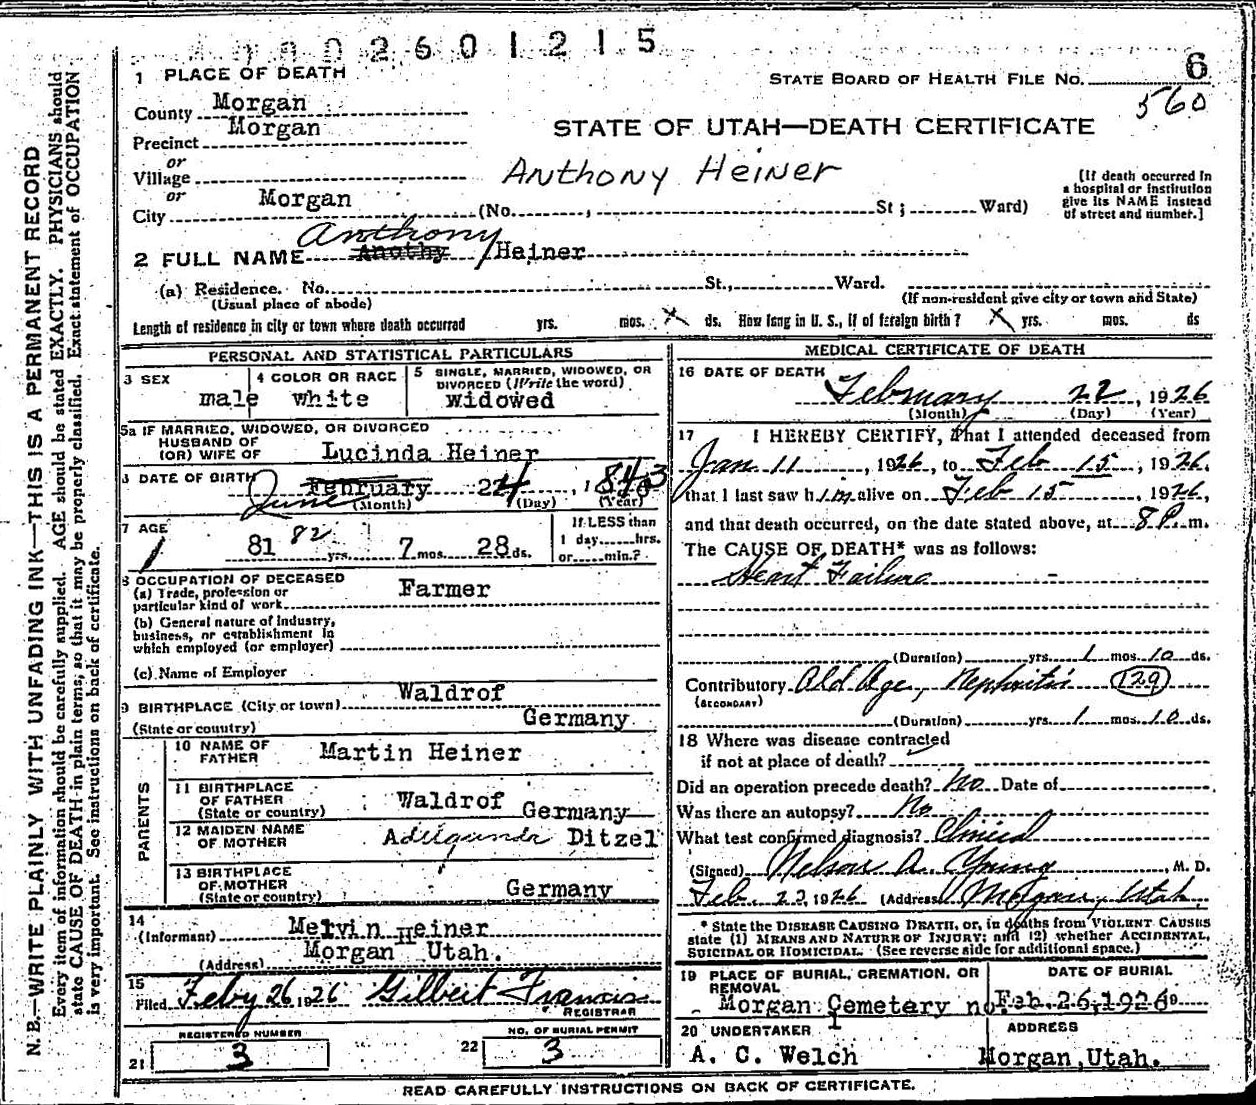 0 0 0 2 6 0 1 2 1 5
1 PLACE OF DEATH
STATE BOARD OF HEALTH FILE NO. 6
560
County Morgan
Precinct Morgan
STATE OF UTAH—DEATH CERTIFICATE
or
Village
Anthony Heiner
or
City Morgan (No. , St ; Ward)
(If death occurred in
a hospital or institution
give its NAME instead
of street and number.]
Anthony
2 FULL NAME Anothy Heiner
(a) Residence. No. St., Ward.
(Usual place of abode) (If non-resident give city or town and State)
Length of residence in city or town where death occurred yrs. mos. X ds. How long in U. S., if of foreign birth? X yrs. mos. ds
PERSONAL AND STATISTICAL PARTICULARS
3 SEX
male
4 COLOR OR RACE
white
5 SINGLE, MARRIED, WIDOWED, OR
DIVORCED (Write the word)
widowed
5a IF MARRIED, WIDOWED, OR DIVORCED
HUSBAND OF
(OR) WIFE OF Lucinda Heiner
6 DATE OF BIRTH June February 24, 1843
(Month) (Day) (Year)
7 AGE
81 82 yrs. 7 mos. 28 ds.
If LESS than
1 day hrs.
or min.?
8 OCCUPATION OF DECEASED
(a) Trade, profession or
particular kind of work Farmer
(b) General nature of industry,
business, or establishment in
which employed (or employer)
(c) Name of Employer
9 BIRTHPLACE (City or town) Waldrof
(State or country) Germany
PARENTS
10 NAME OF
FATHER Martin Heiner
11 BIRTHPLACE
OF FATHER Waldrof
(State or country) Germany
12 MAIDEN NAME
OF MOTHER Adelgunda Ditzel
13 BIRTHPLACE
OF MOTHER
(State or country) Germany
14
(Informant) Melvin Heiner
(Address) Morgan Utah.
15
Filed Feby 26 1926 Gilbert Francis
REGISTRAR
REGISTERED NUMBER
21 3
NO. OF BURIAL PERMIT
22 3
MEDICAL CERTIFICATE OF DEATH
16 DATE OF DEATH
February 22, 1926
(Month) (Day) (Year)
17 I HEREBY CERTIFY, That I attended deceased from
Jan 11, 1926, to Feb 15, 1926.
that I last saw him alive on Feb 15, 1926,
and that death occurred, on the date stated above, at 8 P. m.
The CAUSE OF DEATH* was as follows:
Heart Failure
(Duration) yrs. 1 mos. 10 ds.
Contributory Old Age, Nephritis 129
(SECONDARY)
(Duration) yrs. 1 mos. 10 ds.
18 Where was disease contracted
if not at place of death?
Did an operation precede death? No Date of
Was there an autopsy? No
What test confirmed diagnosis? Clinical
(Signed) Nelson A. Young, M. D.
Feb. 23, 1926 (Address) Morgan, Utah
* State the DISEASE CAUSING DEATH, or, in deaths from VIOLENT CAUSES
state (1) MEANS AND NATURE OF INJURY; and (2) whether ACCIDENTAL,
SUICIDAL OR HOMICIDAL. (See reverse side for additional space.)
19 PLACE OF BURIAL, CREMATION, OR
REMOVAL
Morgan Cemetery no. 1
DATE OF BURIAL
Feb. 26, 1926
20 UNDERTAKER
A. C. Welch
ADDRESS
Morgan, Utah.
READ CAREFULLY INSTRUCTIONS ON BACK OF CERTIFICATE.
N. B.—WRITE PLAINLY WITH UNFADING INK—THIS IS A PERMANENT RECORD
Every item of information should be carefully supplied. AGE should be stated EXACTLY. PHYSICIANS should
state CAUSE OF DEATH in plain terms, so that it may be properly classified. Exact statement of OCCUPATION
is very important. See instructions on back of certificate.